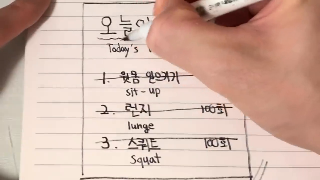 오늘의
Today's
1. 윗몸 일으키기
sit-up
2. 런지 100회
lunge
3. 스쿼트 100회
Squat